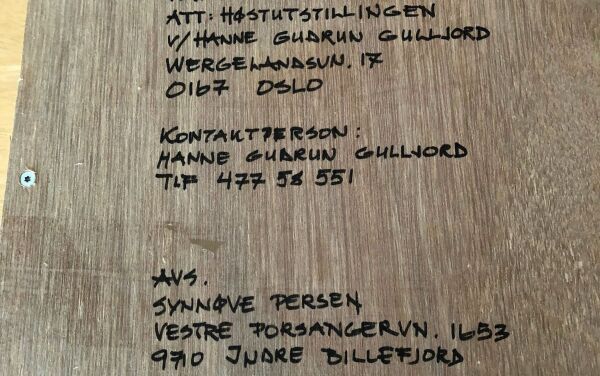 ATT: HØSTUTSTILLINGEN
V/HANNE GUDRUN GULLJORD
WERGELANDSVN. 17
0167 OSLO
KONTAKTPERSON:
HANNE GUDRUN GULLJORD
TLF 477 58 551
AVS.
SYNNØVE PERSEN
VESTRE PORSANGERVN. 1653
9710 INDRE BILLEFJORD